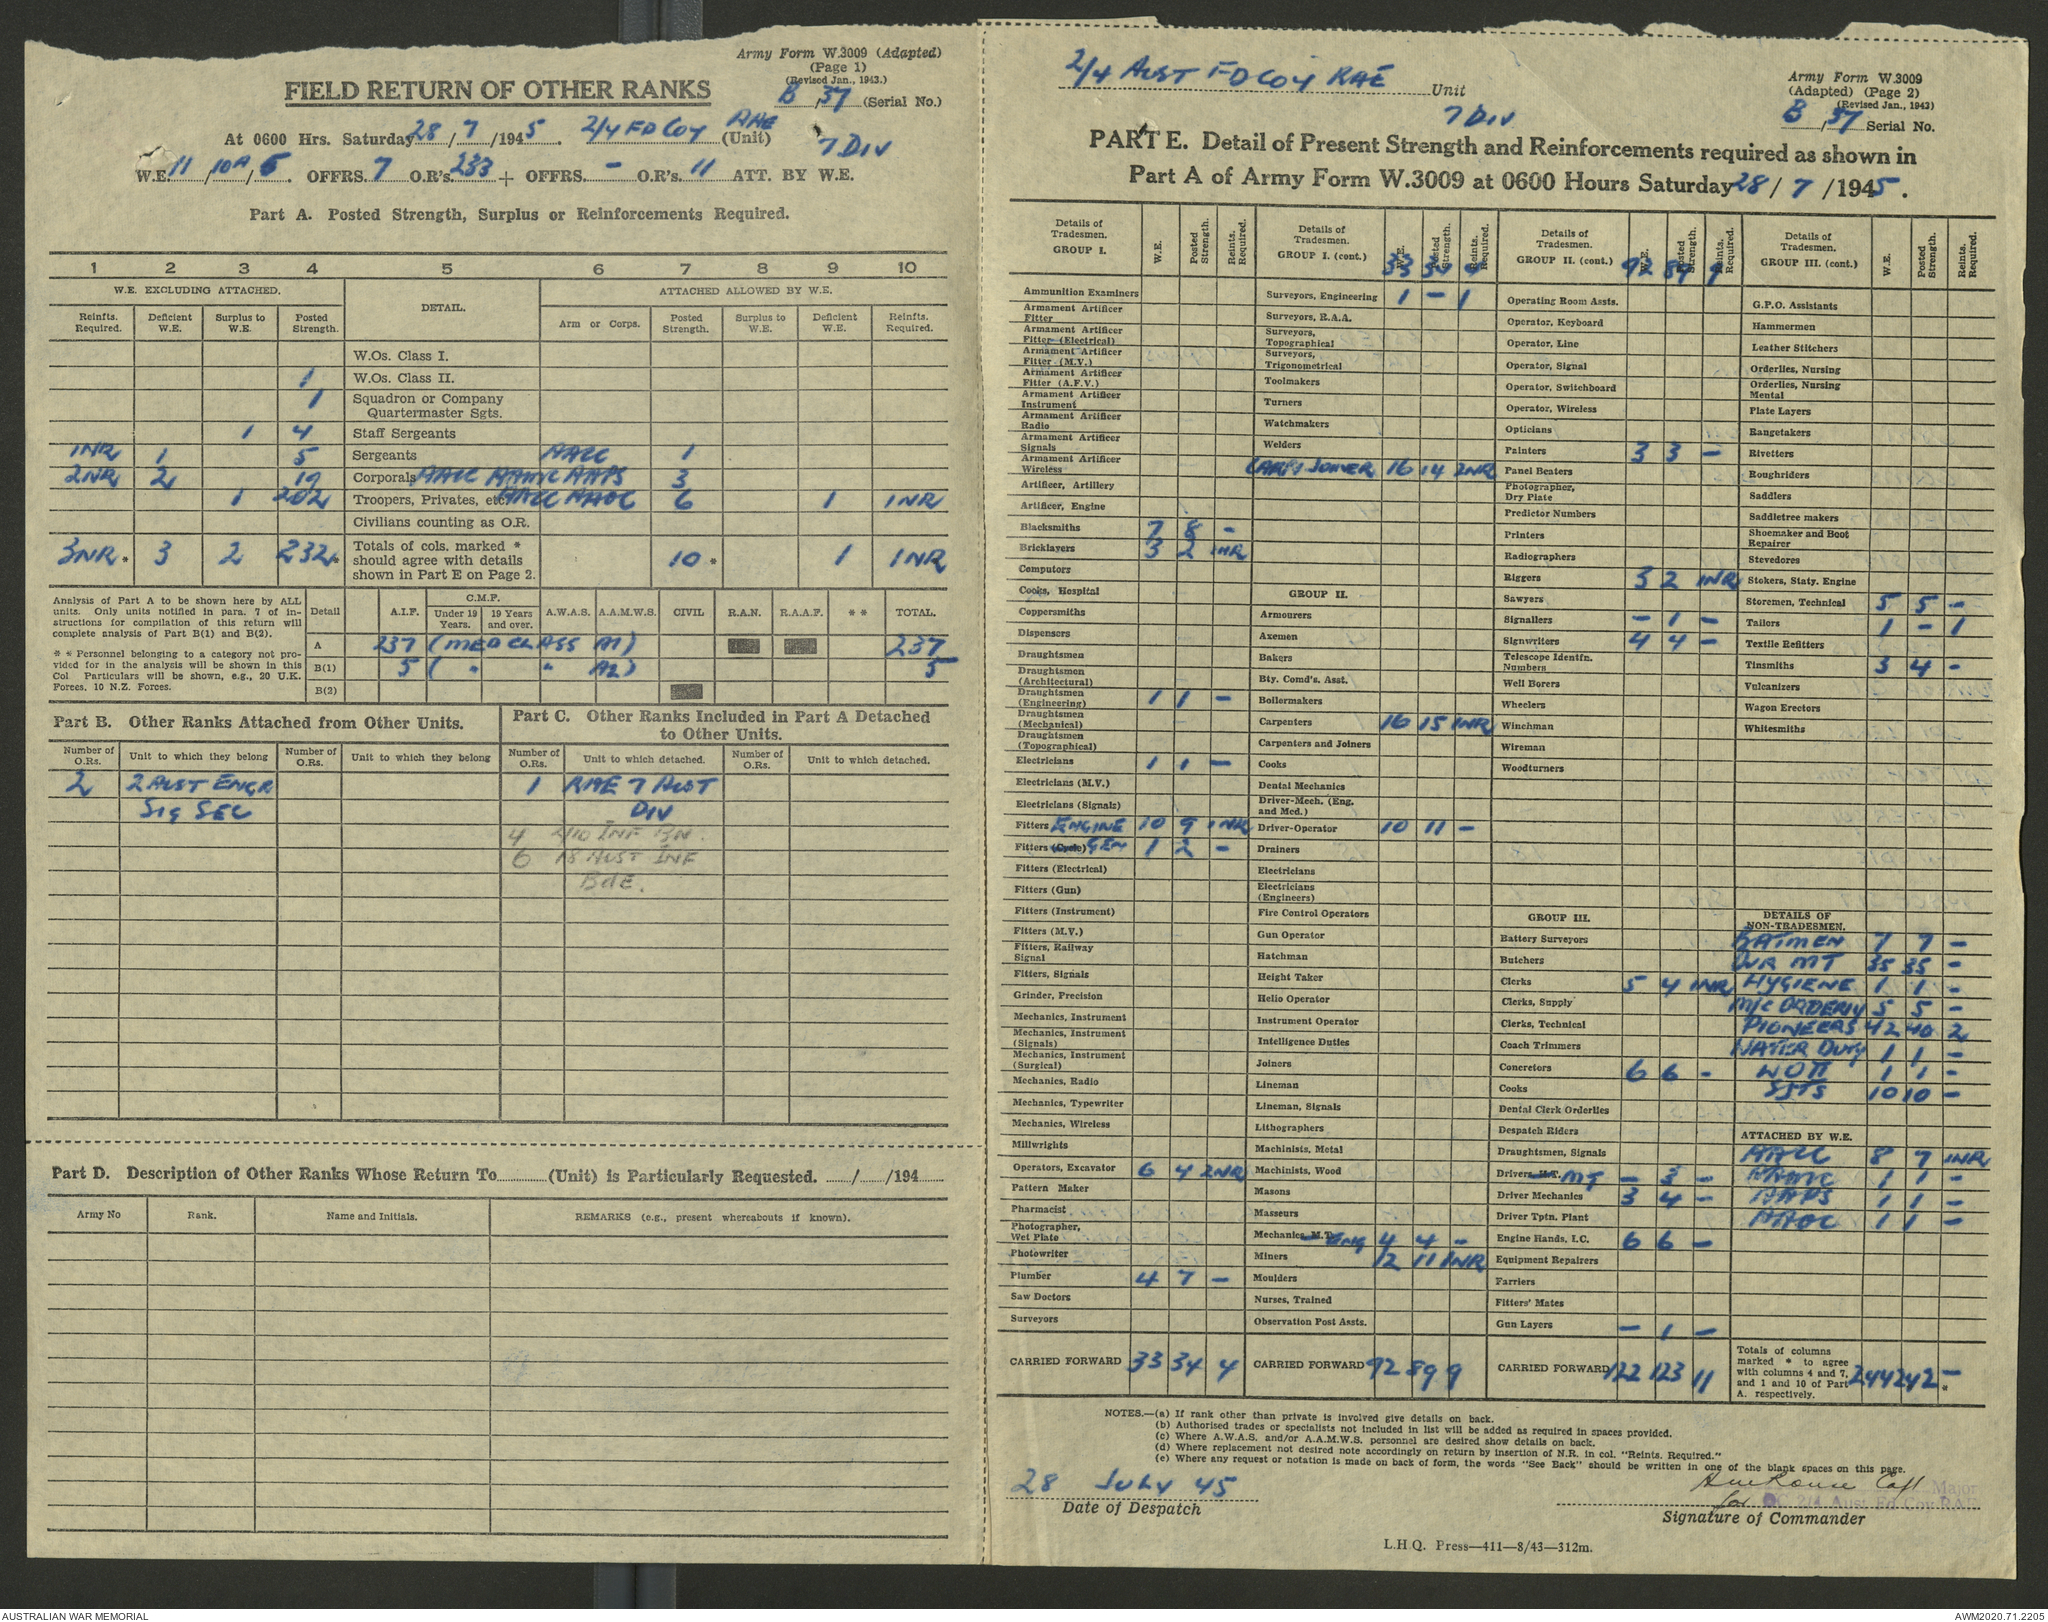 Army Form W.3009 (Adapted)
(Page 1)
(Revised Jan., 1943.)
FIELD RETURN OF OTHER RANKS
B 37 (Serial No.)
At 0600 Hrs. Saturday 28/7/1945. 2/4 FD COY RAE (Unit) 7 DIV
W.E. 11/10A/6. OFFRS. 7 O.R's. 233 + OFFRS. - O.R's. 11 ATT. BY W.E.
Part A. Posted Strength, Surplus or Reinforcements Required.
1 2 3 4 5 6 7 8 9 10
W.E. EXCLUDING ATTACHED. DETAIL. ATTACHED ALLOWED BY W.E.
Reinfts. Required. Deficient W.E. Surplus to W.E. Posted Strength. Arm or Corps. Posted Strength. Surplus to W.E. Deficient W.E. Reinfts. Required.
W.Os. Class I.
1 W.Os. Class II.
1 Squadron or Company Quartermaster Sgts.
1 4 Staff Sergeants
1NR 1 5 Sergeants AACC 1
2NR 2 19 Corporals AACC AAMC AAPS 3
1 202 Troopers, Privates, etc. AACC AAOC 6 1 1NR
Civilians counting as O.R.
3NR* 3 2 232* Totals of cols. marked * should agree with details shown in Part E on Page 2. 10* 1 1NR
Analysis of Part A to be shown here by ALL units. Only units notified in para. 7 of instructions for compilation of this return will complete analysis of Part B(1) and B(2).
* * Personnel belonging to a category not provided for in the analysis will be shown in this Col Particulars will be shown, e.g., 20 U.K. Forces, 10 N.Z. Forces.
Detail A.I.F. C.M.F. Under 19 Years. 19 Years and over. A.W.A.S. A.A.M.W.S. CIVIL R.A.N. R.A.A.F. * * TOTAL.
A 237 (MED CLASS A1) 237
B(1) 5 ( " " A2) 5
B(2)
Part B. Other Ranks Attached from Other Units.
Number of O.Rs. Unit to which they belong Number of O.Rs. Unit to which they belong
2 2 AUST ENGR
SIG SEC
Part C. Other Ranks Included in Part A Detached to Other Units.
Number of O.Rs. Unit to which detached. Number of O.Rs. Unit to which detached.
1 RAE 7 AUST
DIV
4 2/10 INF BN.
6 18 AUST INF
BdE.
Part D. Description of Other Ranks Whose Return To (Unit) is Particularly Requested. / /194
Army No Rank. Name and Initials. REMARKS (e.g., present whereabouts if known).
2/4 AUST FD COY RAE Unit
7 DIV
Army Form W.3009
(Adapted) (Page 2)
(Revised Jan., 1943)
B 37 Serial No.
PART E. Detail of Present Strength and Reinforcements required as shown in
Part A of Army Form W.3009 at 0600 Hours Saturday 28/7/1945.
Details of Tradesmen. GROUP I. W.E. Posted Strength. Reints. Required.
Ammunition Examiners
Armament Artificer Fitter
Armament Artificer Fitter (Electrical)
Armament Artificer Fitter (M.V.)
Armament Artificer Fitter (A.F.V.)
Armament Artificer Instrument
Armament Artificer Radio
Armament Artificer Signals
Armament Artificer Wireless
Artificer, Artillery
Artificer, Engine
Blacksmiths 7 8 -
Bricklayers 3 2 1NR
Computors
Cooks, Hospital
Coppersmiths
Dispensers
Draughtsmen
Draughtsmen (Architectural)
Draughtsmen (Engineering) 1 1 -
Draughtsmen (Mechanical)
Draughtsmen (Topographical)
Electricians 1 1 -
Electricians (M.V.)
Electricians (Signals)
Fitters ENGINE 10 9 1NR
Fitters (Cycle) GEN 1 2 -
Fitters (Electrical)
Fitters (Gun)
Fitters (Instrument)
Fitters (M.V.)
Fitters, Railway Signal
Fitters, Signals
Grinder, Precision
Mechanics, Instrument
Mechanics, Instrument (Signals)
Mechanics, Instrument (Surgical)
Mechanics, Radio
Mechanics, Typewriter
Mechanics, Wireless
Millwrights
Operators, Excavator 6 4 2NR
Pattern Maker
Pharmacist
Photographer, Wet Plate
Photowriter
Plumber 4 7 -
Saw Doctors
Surveyors
CARRIED FORWARD 33 34 4
Details of Tradesmen. GROUP I. (cont.) W.E. Posted Strength. Reints. Required.
33 34 4
Surveyors, Engineering 1 - 1
Surveyors, R.A.A.
Surveyors, Topographical
Surveyors, Trigonometrical
Toolmakers
Turners
Watchmakers
Welders
CARP & JOINER 16 14 2NR
GROUP II.
Armourers
Axemen
Bakers
Bty. Comd's. Asst.
Boilermakers
Carpenters 16 15 1NR
Carpenters and Joiners
Cooks
Dental Mechanics
Driver-Mech. (Eng. and Med.)
Driver-Operator 10 11 -
Drainers
Electricians
Electricians (Engineers)
Fire Control Operators
Gun Operator
Hatchman
Height Taker
Helio Operator
Instrument Operator
Intelligence Duties
Joiners
Lineman
Lineman, Signals
Lithographers
Machinists, Metal
Machinists, Wood
Masons
Masseurs
Mechanics, M.T. Eng 4 4 -
Miners 12 11 1NR
Moulders
Nurses, Trained
Observation Post Assts.
CARRIED FORWARD 92 89 9
Details of Tradesmen. GROUP II. (cont.) W.E. Posted Strength. Reints. Required.
92 89 9
Operating Room Assts.
Operator, Keyboard
Operator, Line
Operator, Signal
Operator, Switchboard
Operator, Wireless
Opticians
Painters 3 3 -
Panel Beaters
Photographer, Dry Plate
Predictor Numbers
Printers
Radiographers
Riggers 3 2 1NR
Sawyers
Signallers - 1 -
Signwriters 4 4 -
Telescope Identfn. Numbers
Well Borers
Wheelers
Winchman
Wireman
Woodturners
GROUP III.
Battery Surveyors
Butchers
Clerks 5 4 1NR
Clerks, Supply
Clerks, Technical
Coach Trimmers
Concretors 6 6 -
Cooks
Dental Clerk Orderlies
Despatch Riders
Draughtsmen, Signals
Drivers H.T. MT - 3 -
Driver Mechanics 3 4 -
Driver Tptn. Plant
Engine Hands, I.C. 6 6 -
Equipment Repairers
Farriers
Fitters' Mates
Gun Layers - 1 -
CARRIED FORWARD 122 123 11
Details of Tradesmen. GROUP III. (cont.) W.E. Posted Strength. Reints. Required.
G.P.O. Assistants
Hammermen
Leather Stitchers
Orderlies, Nursing
Orderlies, Nursing Mental
Plate Layers
Rangetakers
Rivetters
Roughriders
Saddlers
Saddletree makers
Shoemaker and Boot Repairer
Stevedores
Stokers, Staty. Engine
Storemen, Technical 5 5 -
Tailors 1 - 1
Textile Refitters
Tinsmiths 3 4 -
Vulcanizers
Wagon Erectors
Whitesmiths
DETAILS OF NON-TRADESMEN.
BATMEN 7 7 -
DVR MT 35 35 -
HYGIENE 1 1 -
M/C ORDERLY 5 5 -
PIONEERS 42 40 2
WATER DUTY 1 1 -
WOII 1 1 -
SJTS 10 10 -
ATTACHED BY W.E.
AACC 8 7 1NR
AAMC 1 1 -
AAPS 1 1 -
AAOC 1 1 -
Totals of columns marked * to agree with columns 4 and 7, and 1 and 10 of Part A. respectively. 244 242 - *
NOTES.—(a) If rank other than private is involved give details on back.
(b) Authorised trades or specialists not included in list will be added as required in spaces provided.
(c) Where A.W.A.S. and/or A.A.M.W.S. personnel are desired show details on back.
(d) Where replacement not desired note accordingly on return by insertion of N.R. in col. "Reints. Required."
(e) Where any request or notation is made on back of form, the words "See Back" should be written in one of the blank spaces on this page.
28 JULY 45
Date of Despatch
Capt Major
for OC 2/4 Aust Fd Coy RAE
Signature of Commander
L.H.Q. Press—411—8/43—312m.
AUSTRALIAN WAR MEMORIAL
AWM2020.71.2205